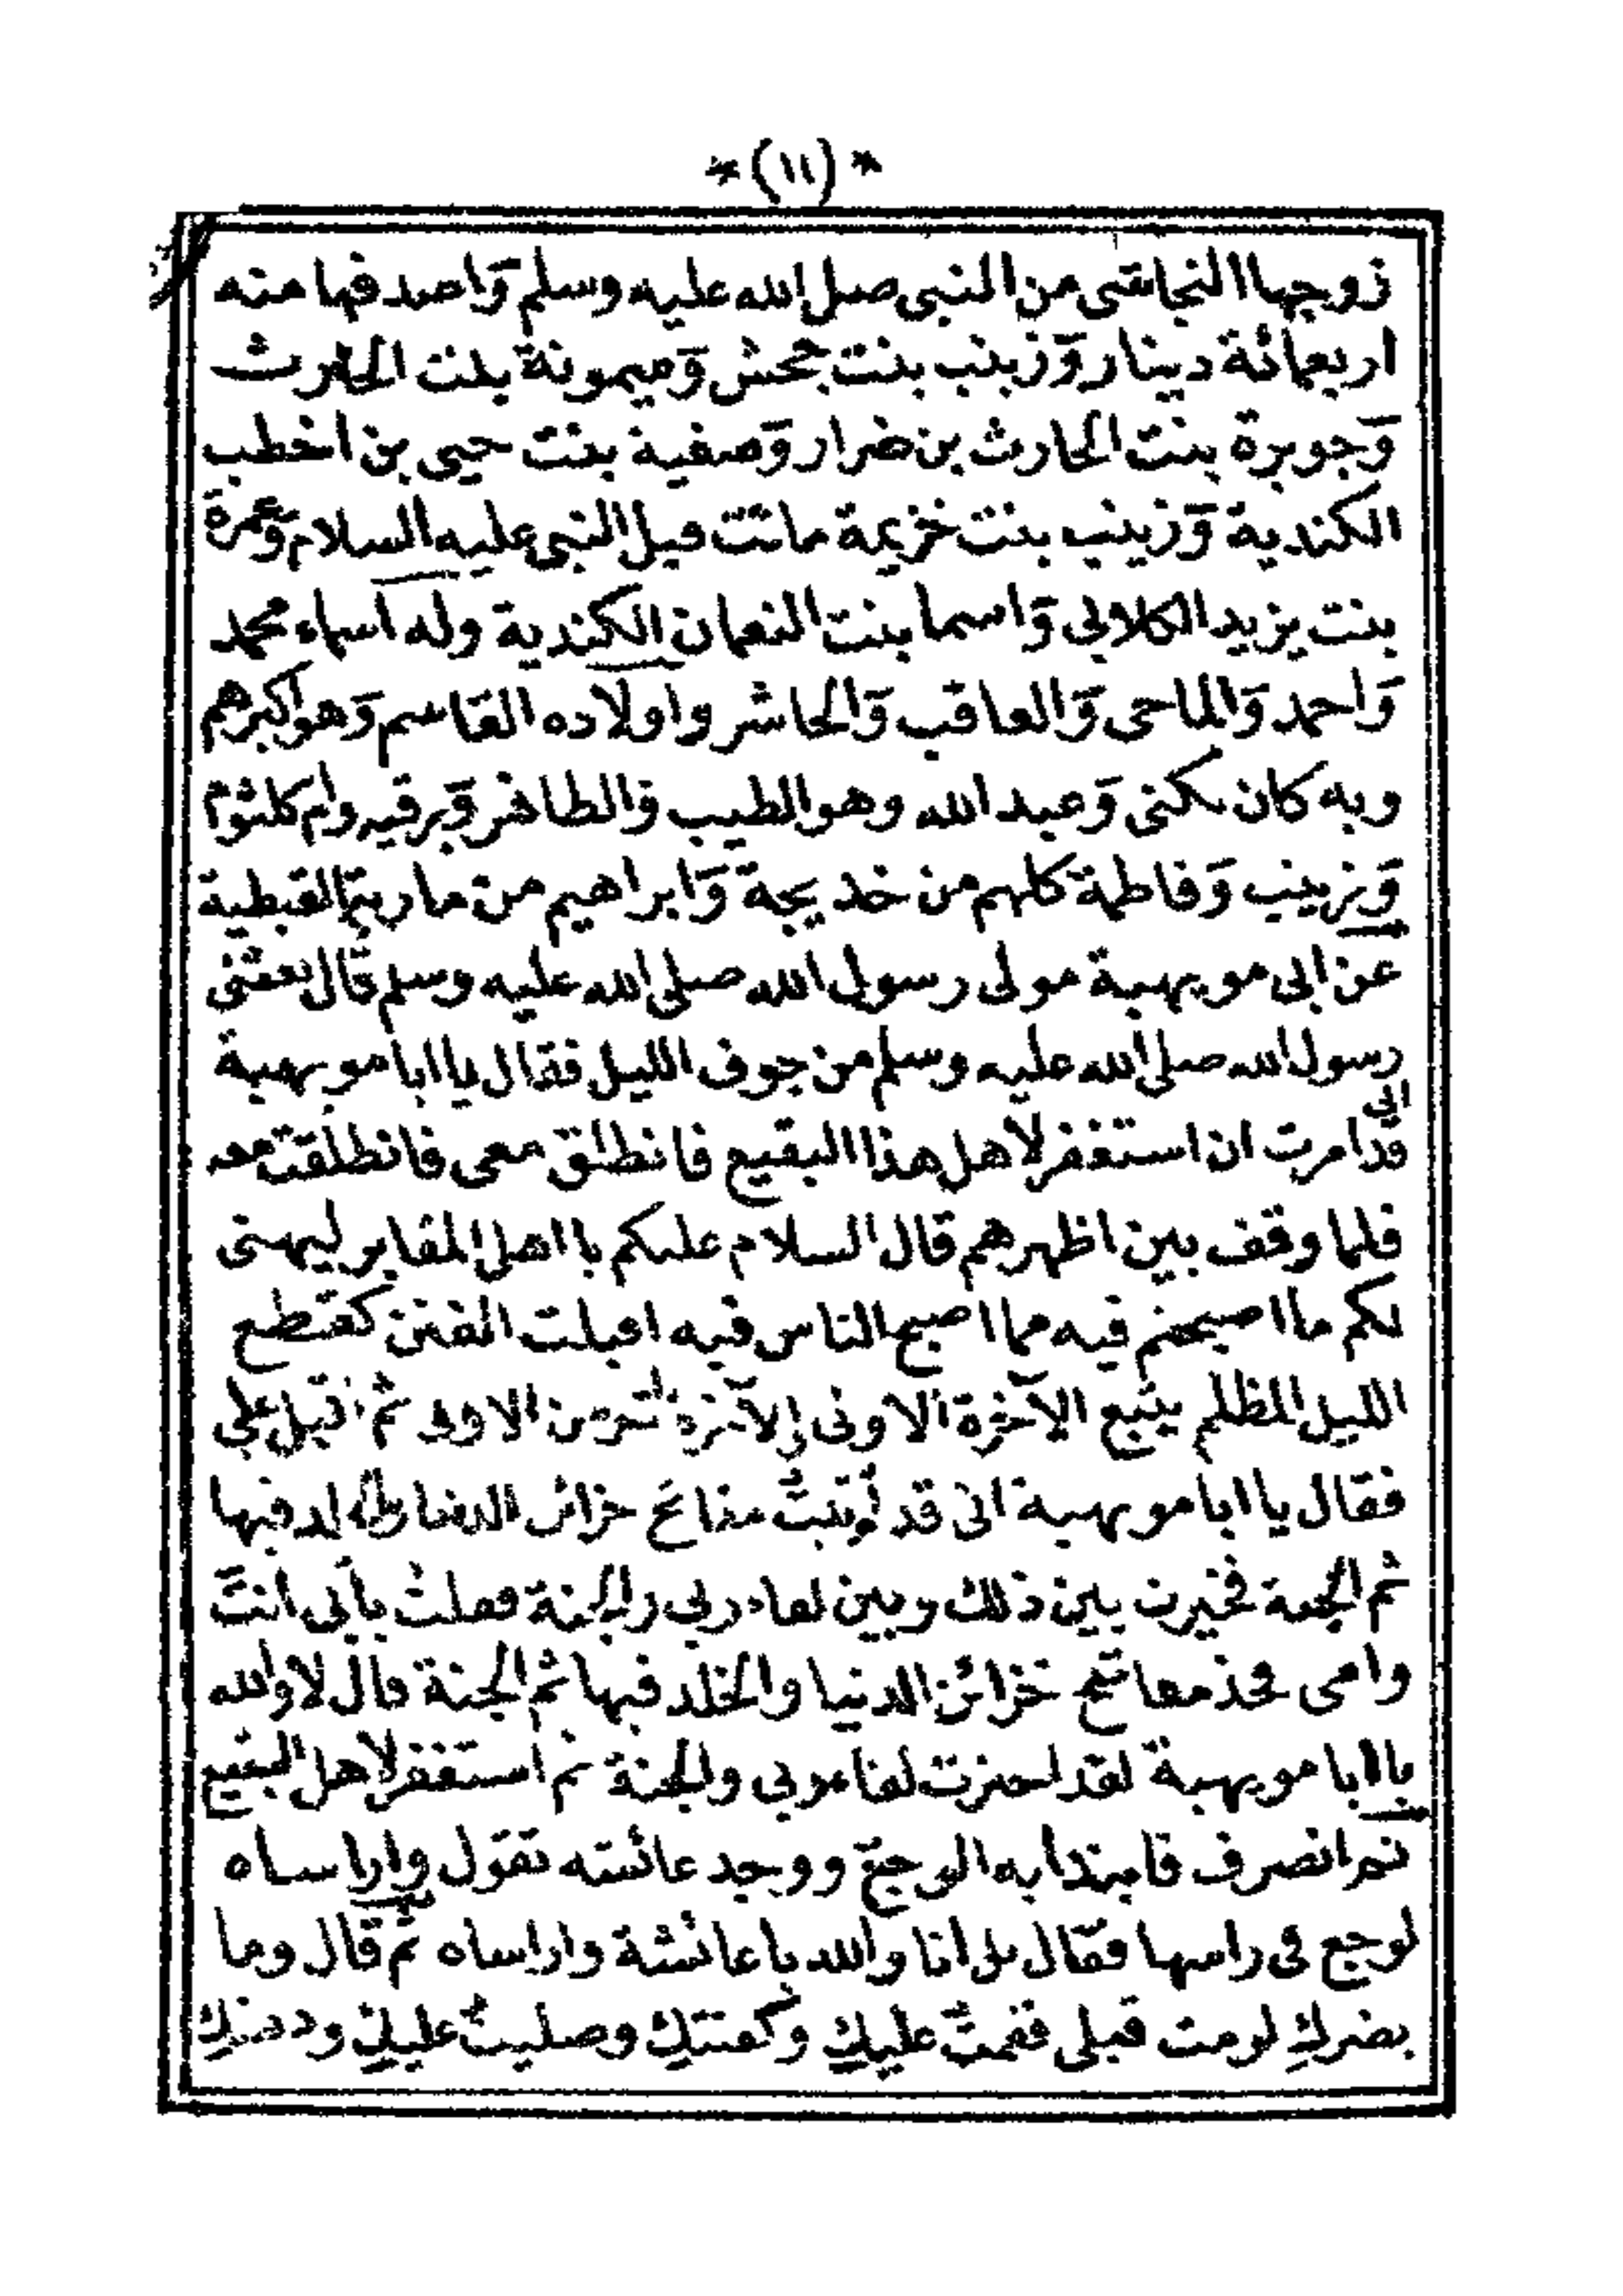 *(١١)*
زوجها النجاشى من النبى صلى الله عليه وسلم وَاصدقها منه
اربعمائة دينار وَزينب بنت جحش وَميمونة بنت الحارث
وَجويرة بنت الحارث بن ضرار وَصفية بنت حيى بن اخطب
الكندية وَزينب بنت خزيمة ماتت قبل النبى عليه السلام وَعمرة
بنت يزيد الكلابى وَاسما بنت النعمان الكندية وله اسماء محمد
وَاحمد وَالماحى وَالعاقب وَالحاشر واولاده القاسم وَهو اكبرهم
وبه كان يكنى وَعبد الله وهو الطيب وَالطاهر وَرقيه وام كلثوم
وَزينب وَفاطمة كلهم من خديجة وَابراهيم من مارية القبطية
عن ابى مويهبة مولى رسول الله صلى الله عليه وسلم قال بعثنى
رسول الله صلى الله عليه وسلم من جوف الليل فقال يا ابا مويهبة
انى
قد امرت ان استغفر لاهل هذا البقيع فانطلق معى فانطلقت معه
فلما وقف بين اظهرهم قال السلام عليكم يا اهل المقابر ليهنى
لكم ما اصبحتم فيه مما اصبح الناس فيه اقبلت الفتن كقطع
الليل المظلم يتبع الآخرة الاولى الآخرة شر من الاولى ثم اقبل على
فقال يا ابا مويهبة انى قد أوتيتُ مفاتح خزائن الدنيا والخلد فيها
ثم الجنة فخيرت بين ذلك وبين لقاء ربى والجنة فقلتُ بأبى انتَ
وامى فخذ مفاتيح خزائن الدنيا والخلد فيها ثم الجنة قال لا والله
يا ابا مويهبة لقد اخترت لقاء ربى والجنة ثم استغفر لاهل البقيع
ثم انصرف فابتدا به الوجع ووجد عائشه تقول واراساه
لوجع فى راسها فقال بل انا والله يا عائشة واراساه ثم قال وما
يضركِ لو مت قبلى فقمتُ عليكِ وكفنتكِ وصليتُ عليكِ ودفنتكِ